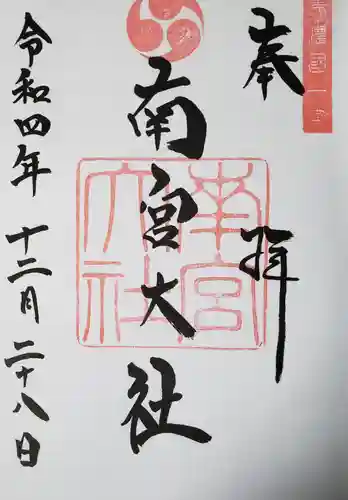 美濃國一之宮
奉拝
南宮大社
南宮大社
令和四年十二月二十八日